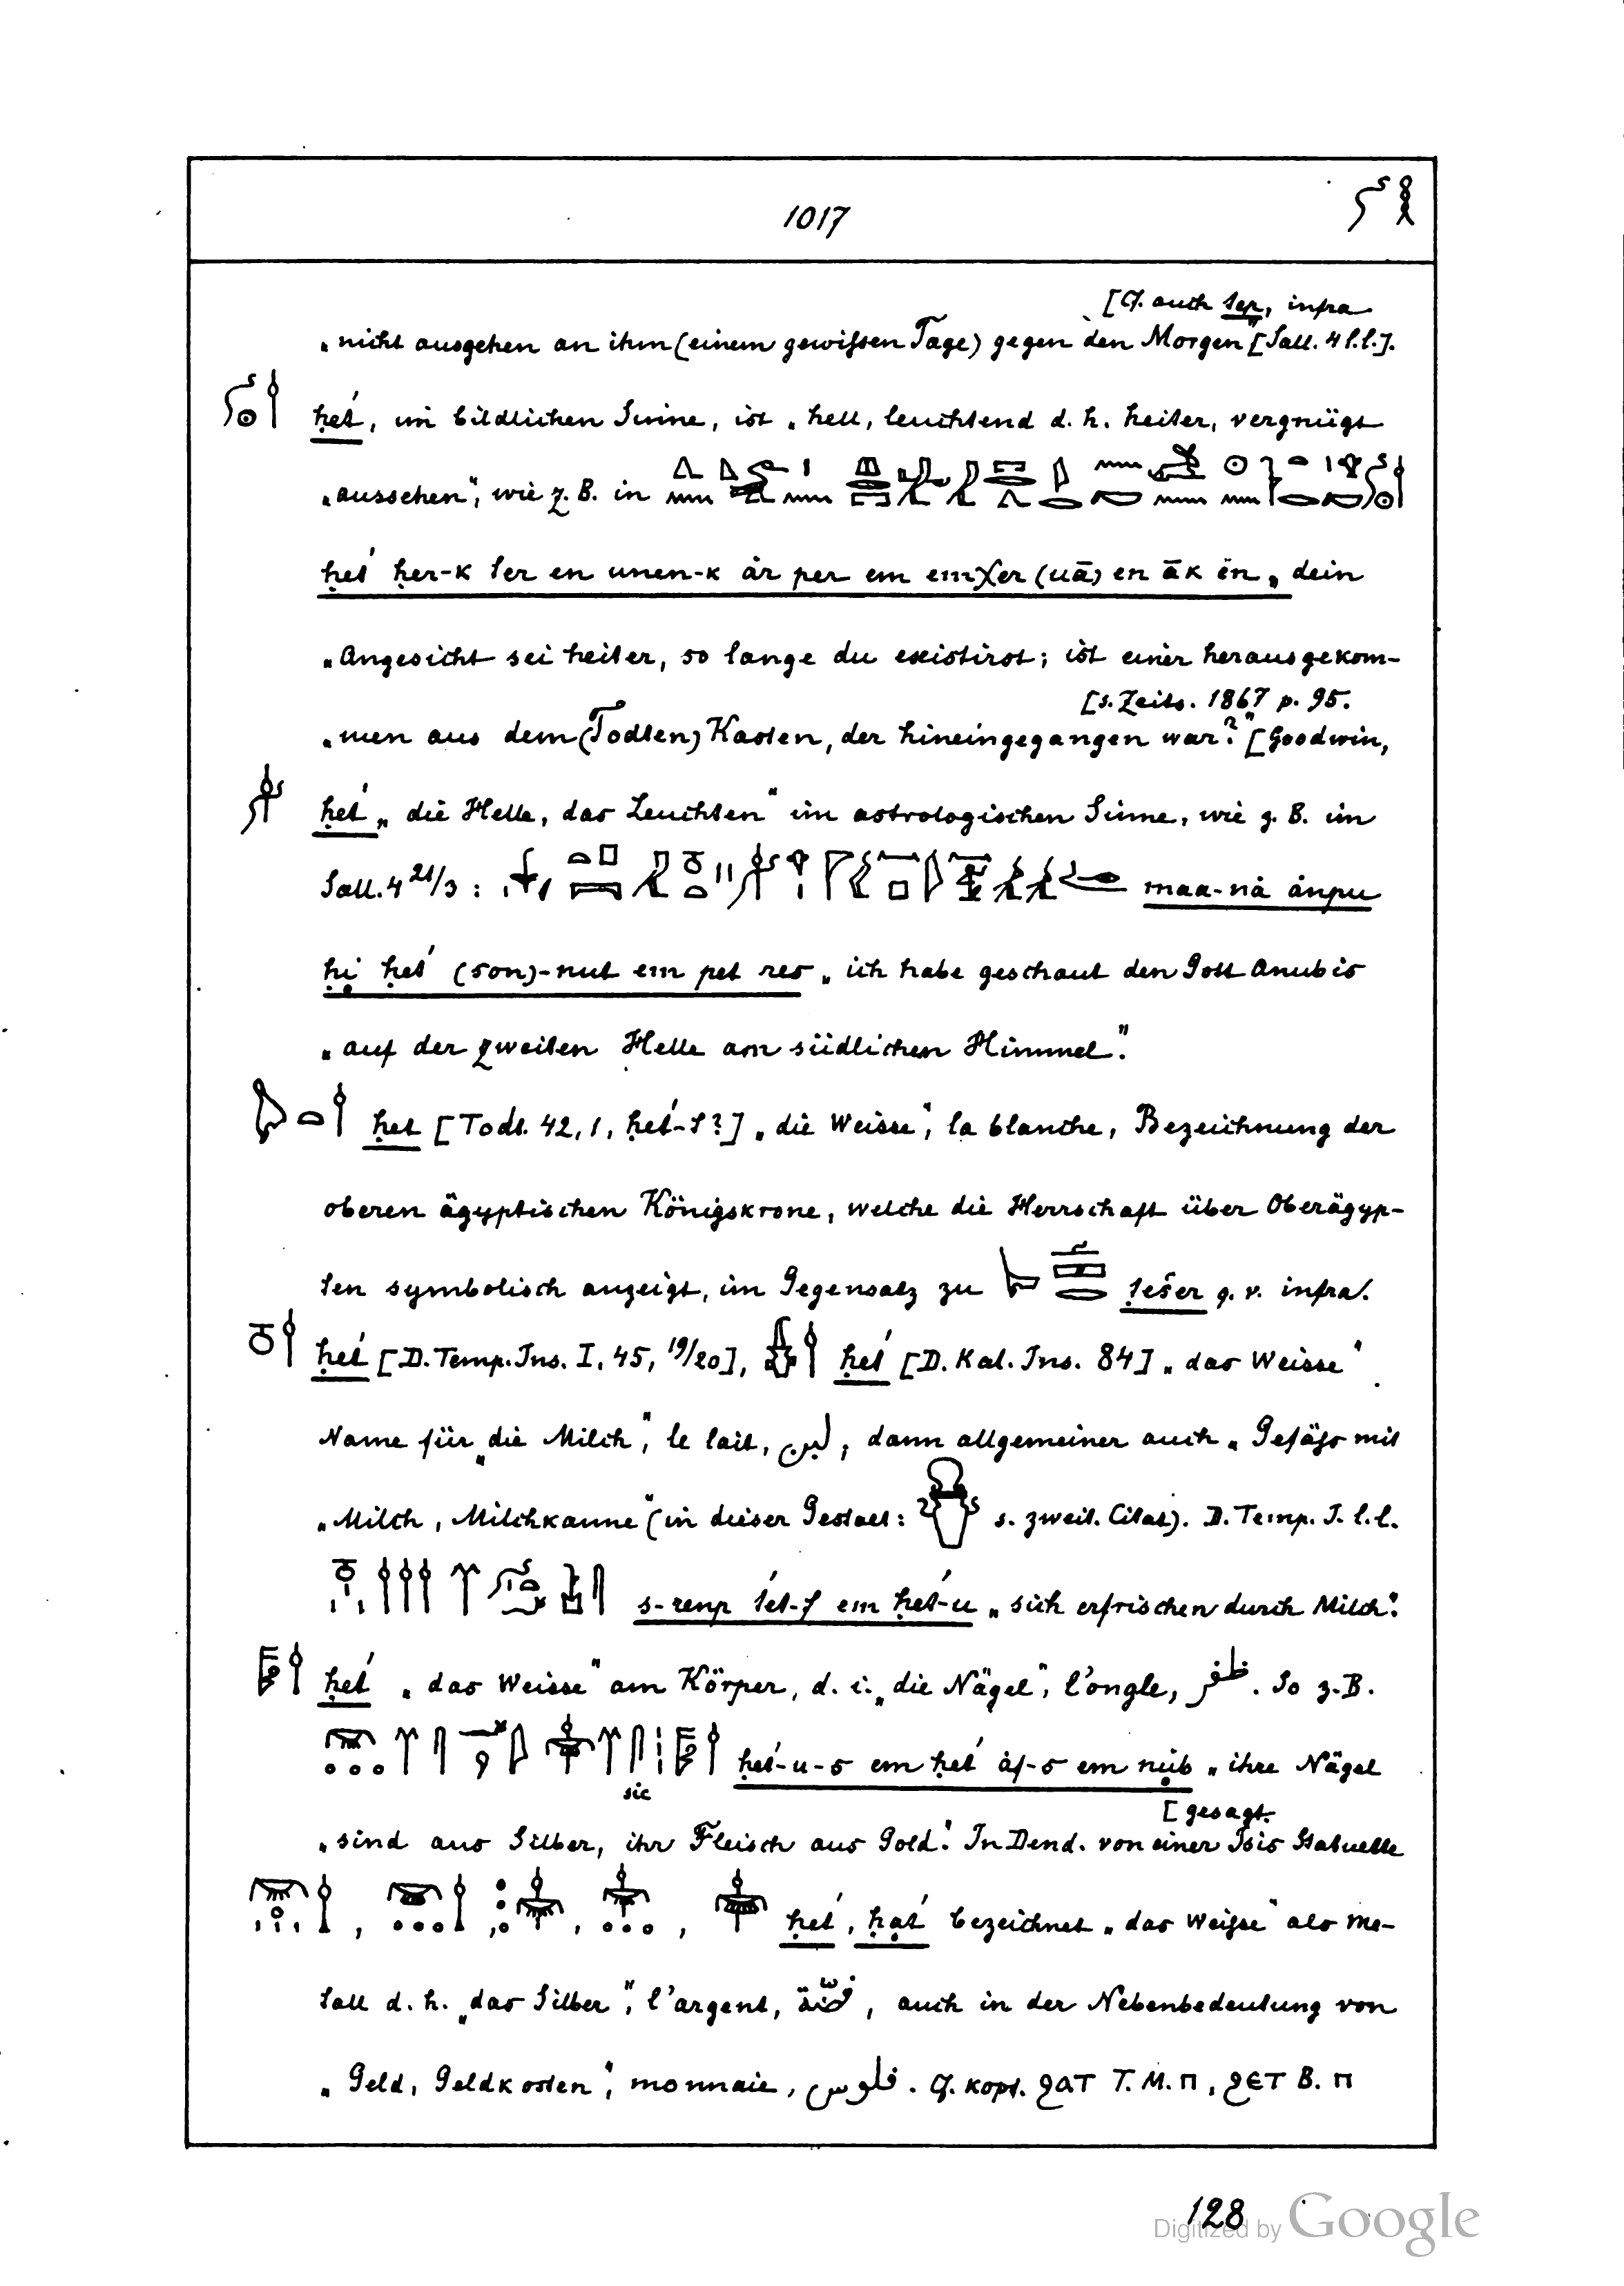 1017
[Cf. auch tep, infra
„nicht ausgehen an ihm (einem gewissen Tage) gegen den Morgen" [Sall. 4 l.l.].
ḥet́, im bildlichen Sinne, ist „hell, leuchtend d. h. heiter, vergnügt
„aussehen", wie z. B. in
ḥet́ ḥer-k ter en unen-k ár per em emχer (uā) en āk ȧn „dein
„Angesicht sei heiter, so lange du existirst; ist einer herausgekom-
[s. Zeits. 1867 p. 95.
„men aus dem (Todten) Kasten, der hineingegangen war?" [Goodwin,
ḥet́ „die Helle, das Leuchten" im astrologischen Sinne, wie z. B. im
Sall. 4 21/3 : maa-nȧ ȧnpu
ḥi ḥet́ (son)-nut em pet res „ich habe geschaut den Gott Anubis
„auf der zweiten Helle am südlichen Himmel".
ḥet [Todt. 42, 1, ḥet́-t?] „die Weisse", la blanche, Bezeichnung der
oberen ägyptischen Königskrone, welche die Herrschaft über Oberägyp-
ten symbolisch anzeigt, im Gegensatz zu ṭešer q. v. infra.
ḥet́ [D. Temp. Ins. I, 45, 19/20], ḥet́ [D. Kal. Ins. 84] „das Weisse"
Name für „die Milch", le lait, لبن, dann allgemeiner auch „Gefäss mit
„Milch, Milchkanne" (in dieser Gestalt: s. zweit. Citat). D. Temp. I. l. l.
s-renp t́et-f em ḥet́-u „sich erfrischen durch Milch".
ḥet́ „das Weisse" am Körper, d. i. „die Nägel", l'ongle, ظفر. So z. B.
ḥet́-u-s em ḥet́ ȧf-s em nub „ihre Nägel
sic
[gesagt.
„sind aus Silber, ihr Fleisch aus Gold". In Dend. von einer Isis Statuette
ḥet́, ḥat́ bezeichnet „das Weisse" als Me-
tall d. h. „das Silber", l'argent, فضّة, auch in der Nebenbedeutung von
„Geld, Geldkosten", monnaie, فلوس. Cf. kopt. ϩⲁⲧ T. M. ⲡ, ϩⲉⲧ B. ⲡ
128
Digitized by Google